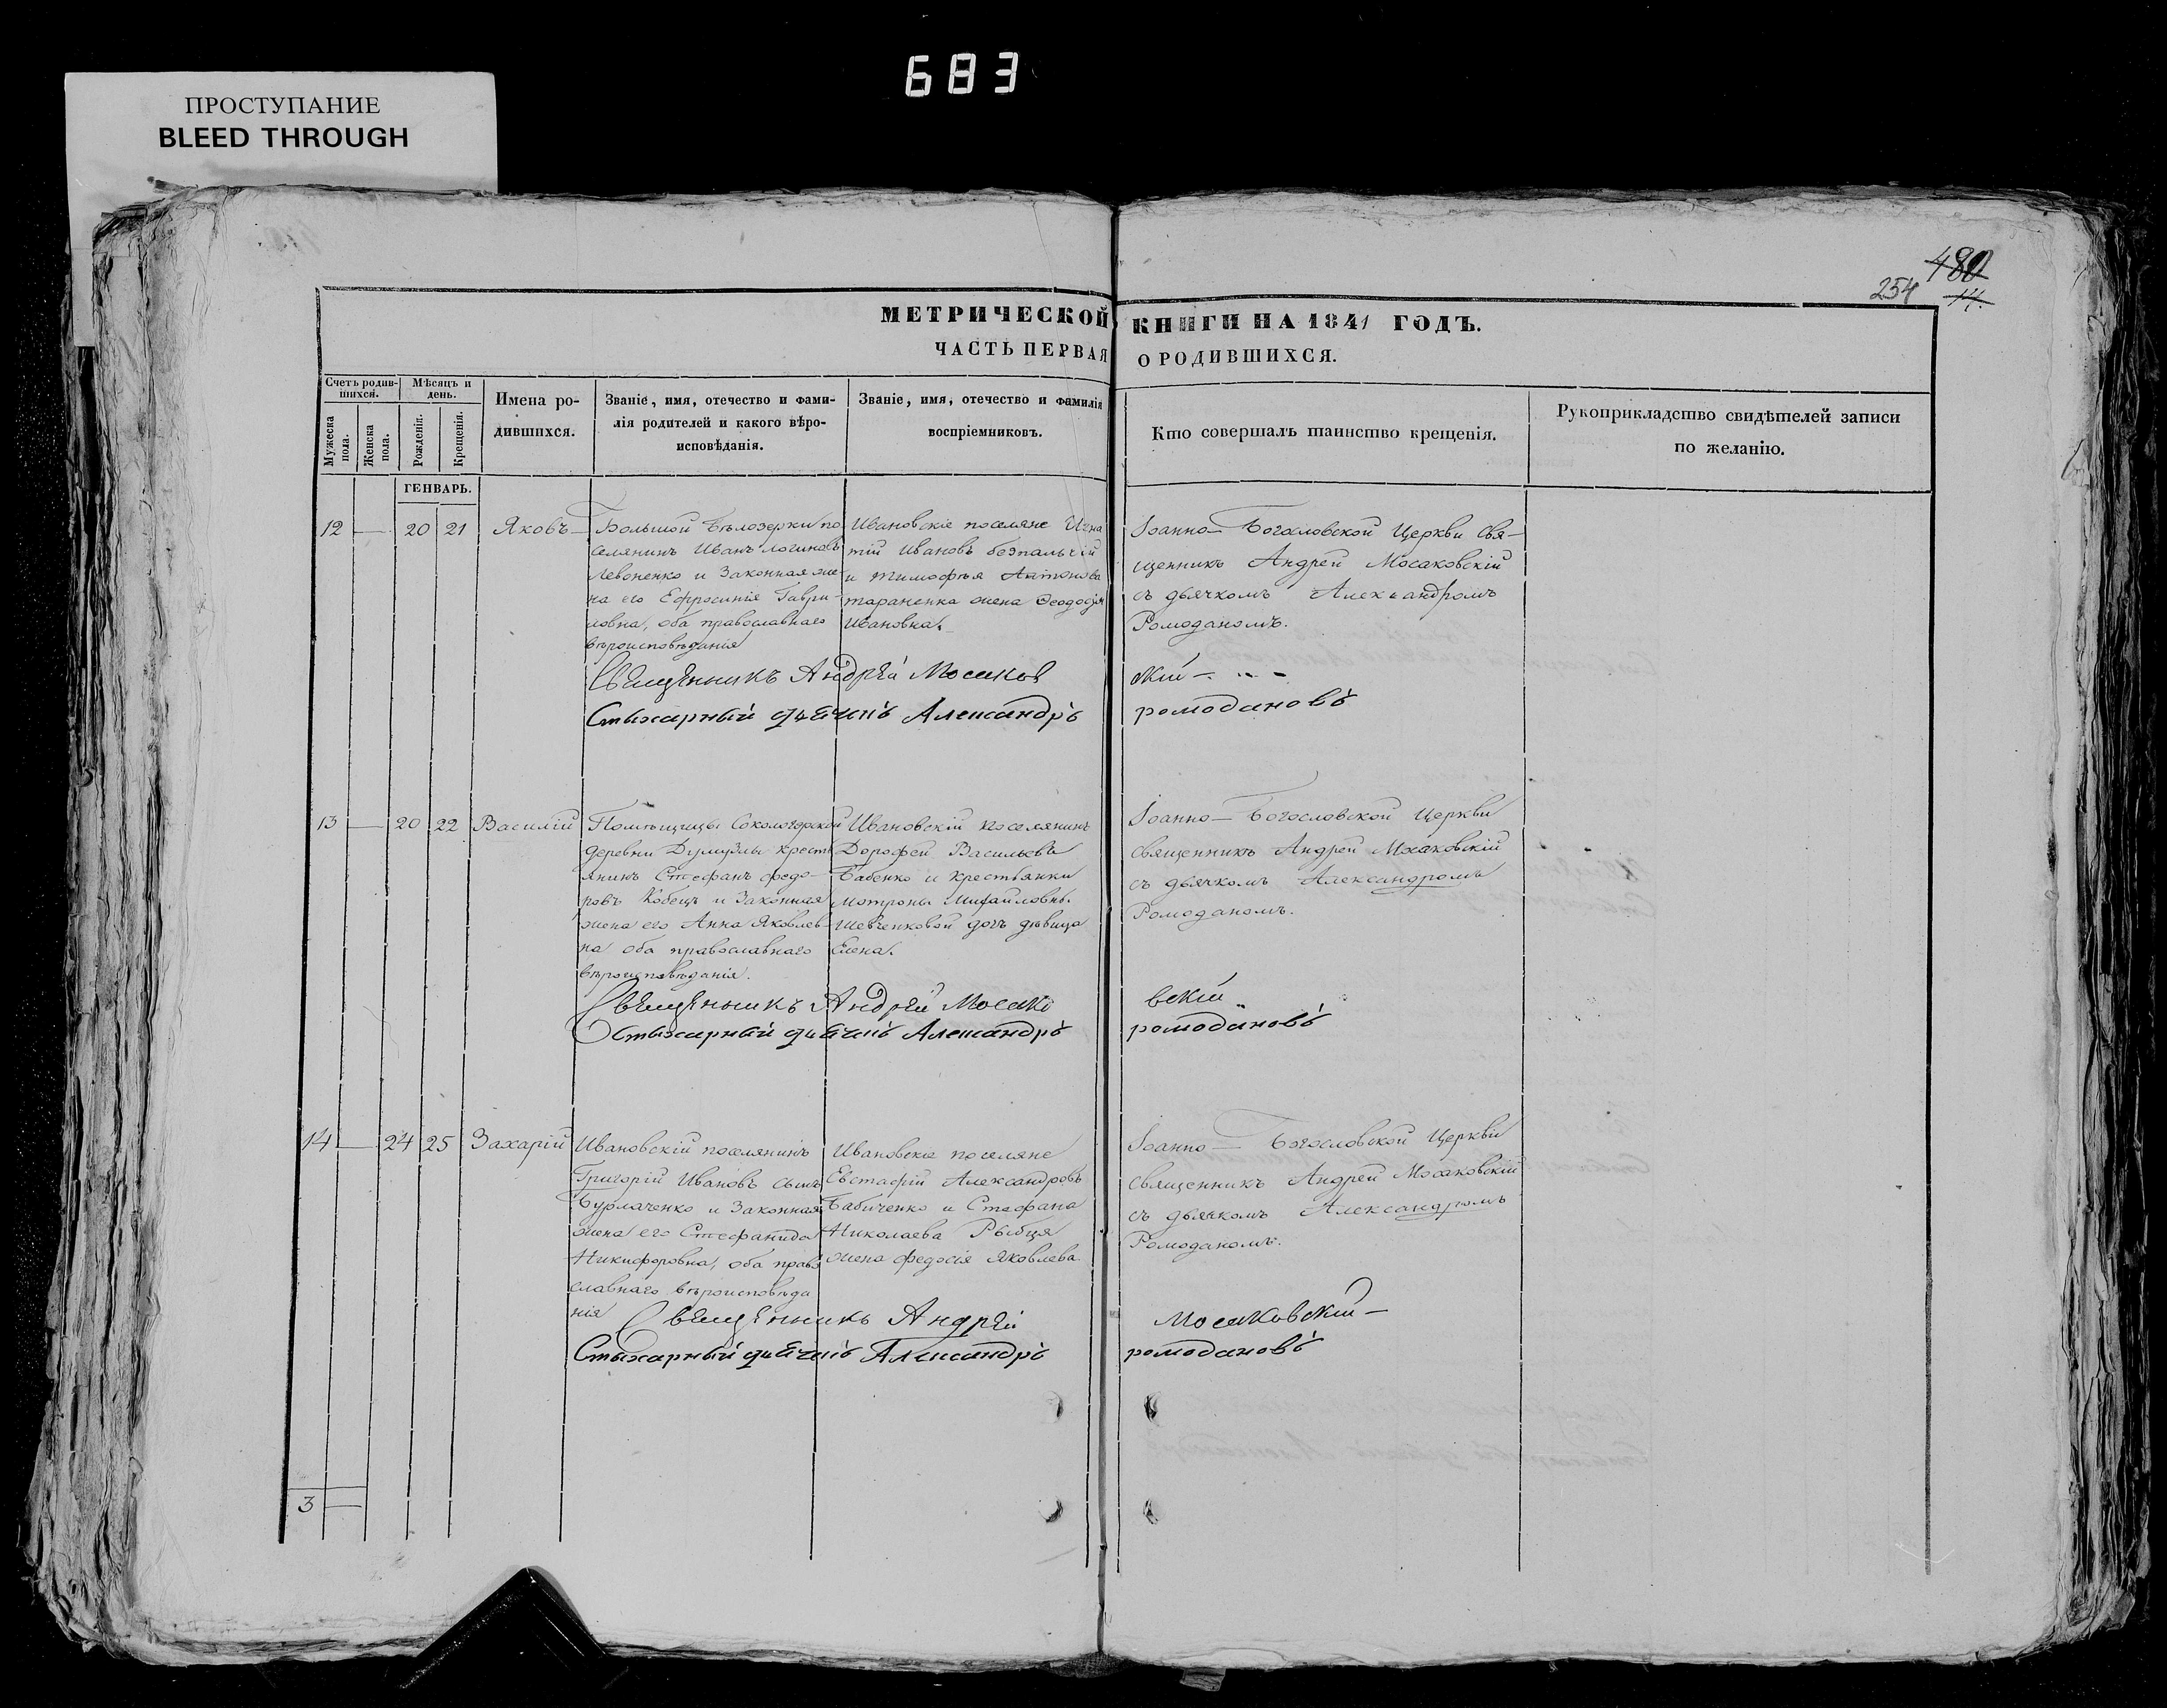 683
ПРОСТУПАНИЕ
BLEED THROUGH
480
254 14.
МЕТРИЧЕСКОЙ КНИГИ НА 1841 ГОДЪ.
ЧАСТЬ ПЕРВАЯ О РОДИВШИХСЯ.
Счетъ родив-
шихся.
Мужеска
пола.
Женска
пола.
Мѣсяцъ и
день.
Рожденія.
Крещенія.
Имена ро-
дившихся.
Званіе, имя, отечество и фами-
лія родителей и какого вѣро-
исповѣданія.
Званіе, имя, отечество и фамилія
воспріемниковъ.
Кто совершалъ таинство крещенія.
Рукоприкладство свидѣтелей записи
по желанію.
ГЕНВАРЬ.
12 — 20 21 Яковъ
Большой Бѣлозерки по
селянинъ Иванъ Логиновъ
Левоненко и Законная же
на его Ефросинія Гаври-
ловна, оба православнаго
вѣроисповѣданія
Ивановскіе поселяне Игна
тій Ивановъ безпальчій
и тимофѣя Антонова
тараненка жена Феодосія
Ивановна.
Іоанно-Богословской Церкви Свя-
щенникъ Андрей Мосаковскій
съ дьячкомъ Александромъ
Ромоданомъ.
Священникъ Андрей Мосаков скій
Стихарный дьячекъ Александръ ромодановъ
13 — 20 22 Василій
Помѣщицы Сокологорской
деревни крестъ
янинъ Стефанъ федо-
ровъ Кобецъ и Законная
жена его Анна Яковлев-
на оба православнаго
вѣроисповѣданія.
Ивановскій поселянинъ
Дорофей Васильевъ
Бабенко и крестьянки
Мотроны Михайловны
Шевченковой дочь дѣвица
Елена.
Іоанно-Богословской Церкви
Священникъ Андрей Мосаковскій
съ дьячкомъ Александромъ
Ромоданомъ.
Священникъ Андрей Мосако вскій
Стихарный дьячекъ Александръ ромодановъ
14 — 24 25 Захарій
Ивановскій поселянинъ
Григорій Ивановъ сынъ
Бурлаченко и Законная
жена его Стефанида
Никифоровна, оба право
славнаго вѣроисповѣда
нія
Ивановскіе поселяне
Евстафій Александровъ
Бабиченко и Стефана
Николаева Рыбця
жена федосія Яковлева
Іоанно-Богословской Церкви
Священникъ Андрей Мосаковскій
съ дьячкомъ Александромъ
Ромоданомъ.
Священникъ Андрей Мосаковскій
Стихарный дьячекъ Александръ ромодановъ
3 —